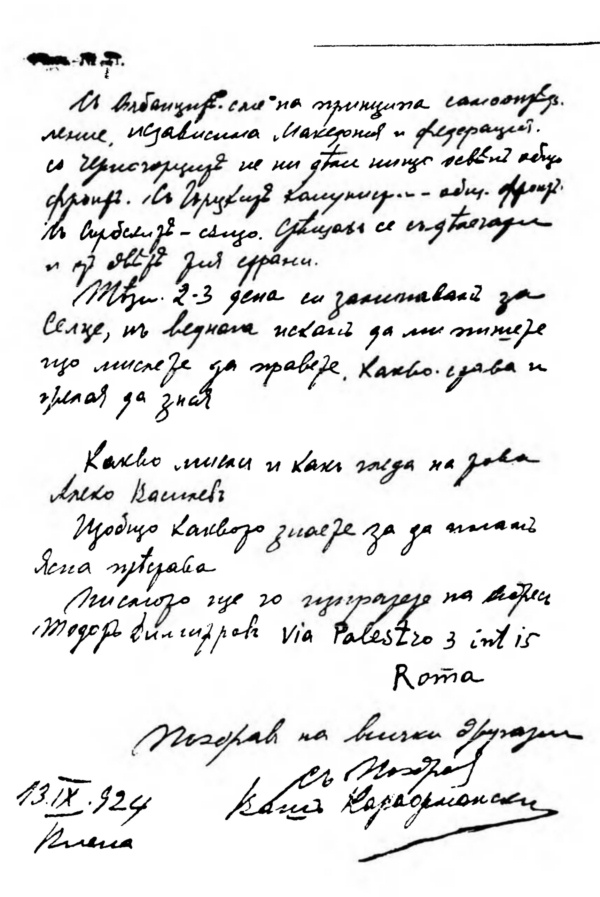 Съ Албанцитѣ сме на принципа самоопрѣд.
ление, независима Македония и федерация.
съ Черногорцитѣ не ни дѣли нищо освѣнъ общъ
фронтъ. Съ Гръцкитѣ комунисти – общ. фронтъ.
Съ Сръбскитѣ – също.
и отъ двѣтѣ тия страни.
Тѣзи 2-3 дена си заминавамъ за
Селце, но веднага искамъ да ми пишете
що мислете да правете. Какво става и
трябва да зная
Какво мисли и какъ гледа на това
Алеко Василевъ
Изобщо каквото знаете за да имамъ
ясна прѣдстава
Писмото ще го изпратете на адресъ
Тодоръ Димитровъ Via Palestro 3 int 15
Roma
Поздрав на всички другари
Съ поздрав
Вашъ Караормански
13.IX.924
Виена